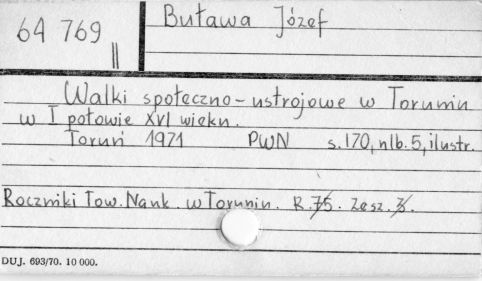 64 769
II
Buława Józef
Walki społeczno-ustrojowe w Toruniu
w I połowie XVI wieku.
Toruń 1971 PWN s.170, nlb. 5, ilustr.
Roczniki Tow. Nauk. w Toruniu. R. 75. Zesz. 3.
DUJ. 693/70. 10 000.